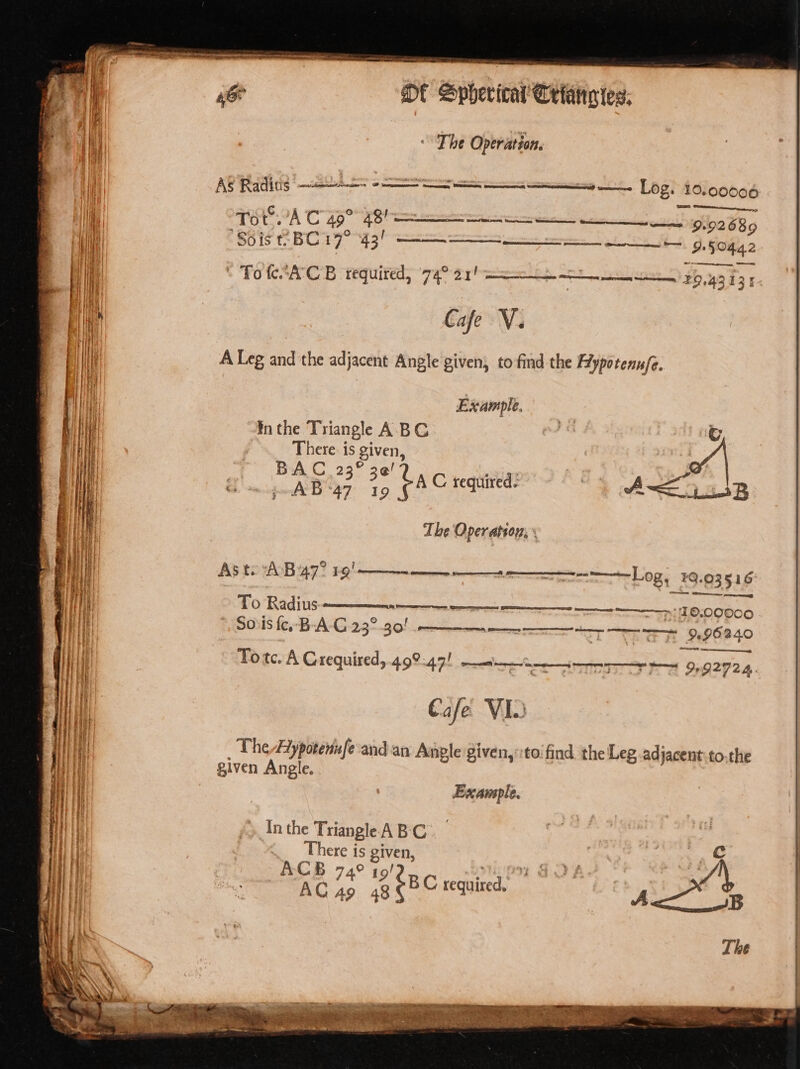 46 Of Spherical Triangles.
The Operation.
As Radius Log. 10.00000
To tc. AC 49° 48' 9.92689
So is t. BC 17° 43' 9.50442
To sc. ACB required, 74° 21' 19.43131
Case V.
A Leg and the adjacent Angle given, to find the Hypotenuse.
Example.
In the Triangle ABC
There is given,
BAC 23° 30'
AB 47 19 } AC required.
C
A B
The Operation.
As t. AB 47° 19' Log. 10.03516
To Radius 10.00000
So is sc. BAC 23° 30' 9.96240
To tc. AC required, 49° 47' 9.92724
Case VI.
The Hypotenuse and an Angle given, to find the Leg adjacent to the
given Angle.
Example.
In the Triangle ABC
There is given,
ACB 74° 19'
AC 49 48 } BC required.
C
A B
The